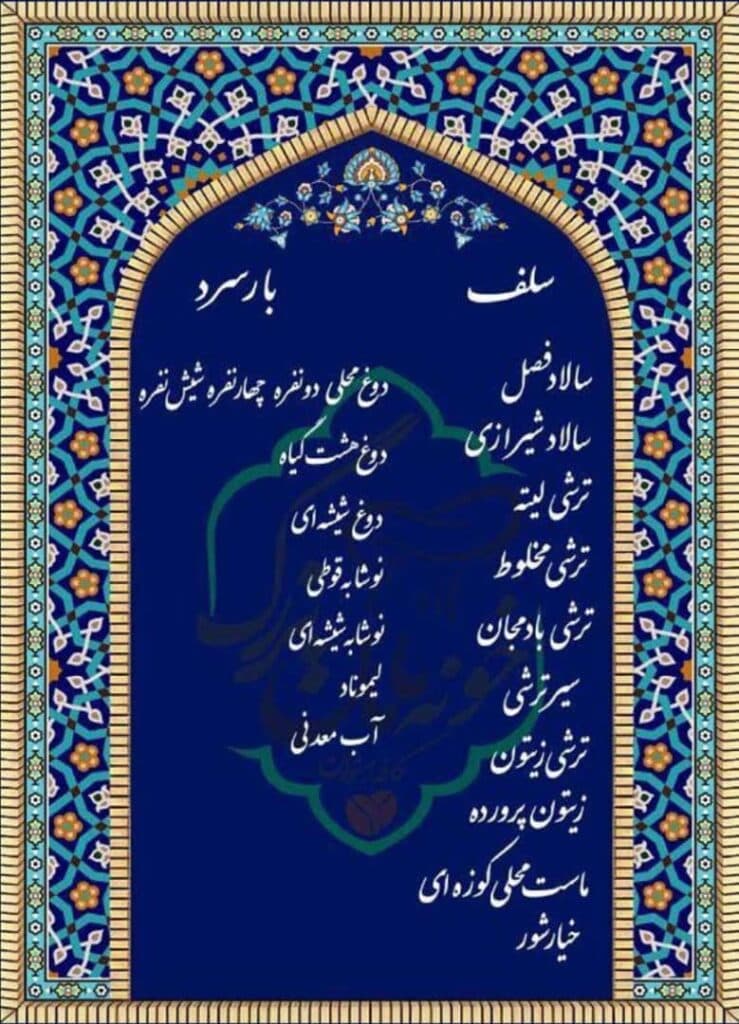 سلف
سالاد فصل
سالاد شیرازی
ترشی لیته
ترشی مخلوط
ترشی بادمجان
سیر ترشی
ترشی زیتون
زیتون پرورده
ماست محلی کوزه ای
خیارشور
بار سرد
دوغ محلی دو نفره چهار نفره شیش نفره
دوغ هشت گیاه
دوغ شیشه ای
نوشابه قوطی
نوشابه شیشه ای
لیموناد
آب معدنی